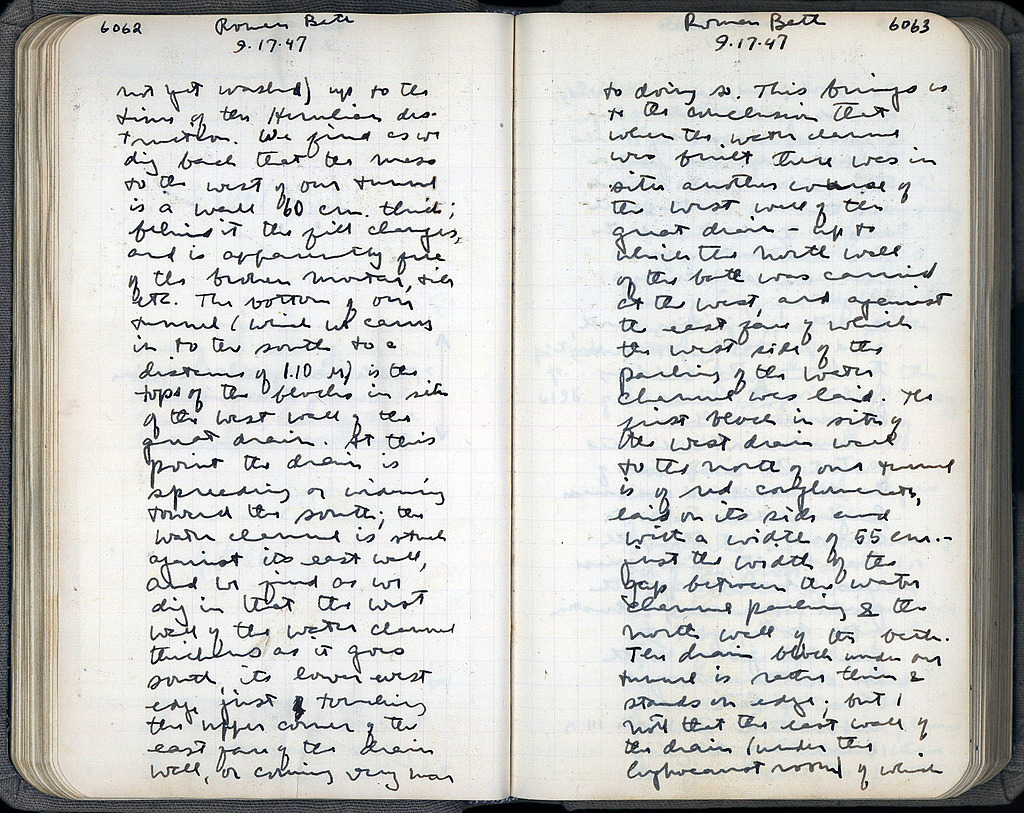 6062
Roman Bath
9.17.47
not yet washed) up to the
time of the Herulian des-
truction. We find as we
dig back that the mass
to the west of our tunnel
is a wall 60 cm. thick;
behind it the fill changes,
and is apparently full
of the broken mortar, tiles
etc. The bottom of our
tunnel (which we carry
in to the south to a
distance of 1.10 M) is the
tops of the blocks in situ
of the west wall of the
great drain. At this
point the drain is
spreading or widening
toward the south; the
water channel is stuck
against its east wall,
and we find as we
dig in that the west
wall of the water channel
thickens as it goes
south, its lower west
edge just touching
the upper corner of the
east face of the drain
wall, or coming very near
6063
Roman Bath
9.17.47
to doing so. This brings us
to the conclusion that
when the water channel
was built there was in
situ another course of
the west wall of the
great drain – up to
which the north wall
of the bath was carried
at the west, and against
the east face of which
the west side of the
packing of the water
channel was laid. The
first block in situ of
the west drain wall
to the north of our tunnel
is of red conglomerate,
laid on its side and
with a width of 55 cm. –
just the width of the
gap between the water
channel packing & the
north wall of the bath.
The drain block under our
tunnel is rather thin &
stands on edge; but I
note that the east wall of
the drain (under the
hypocaust room) of which